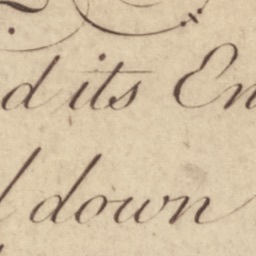 d its En
down